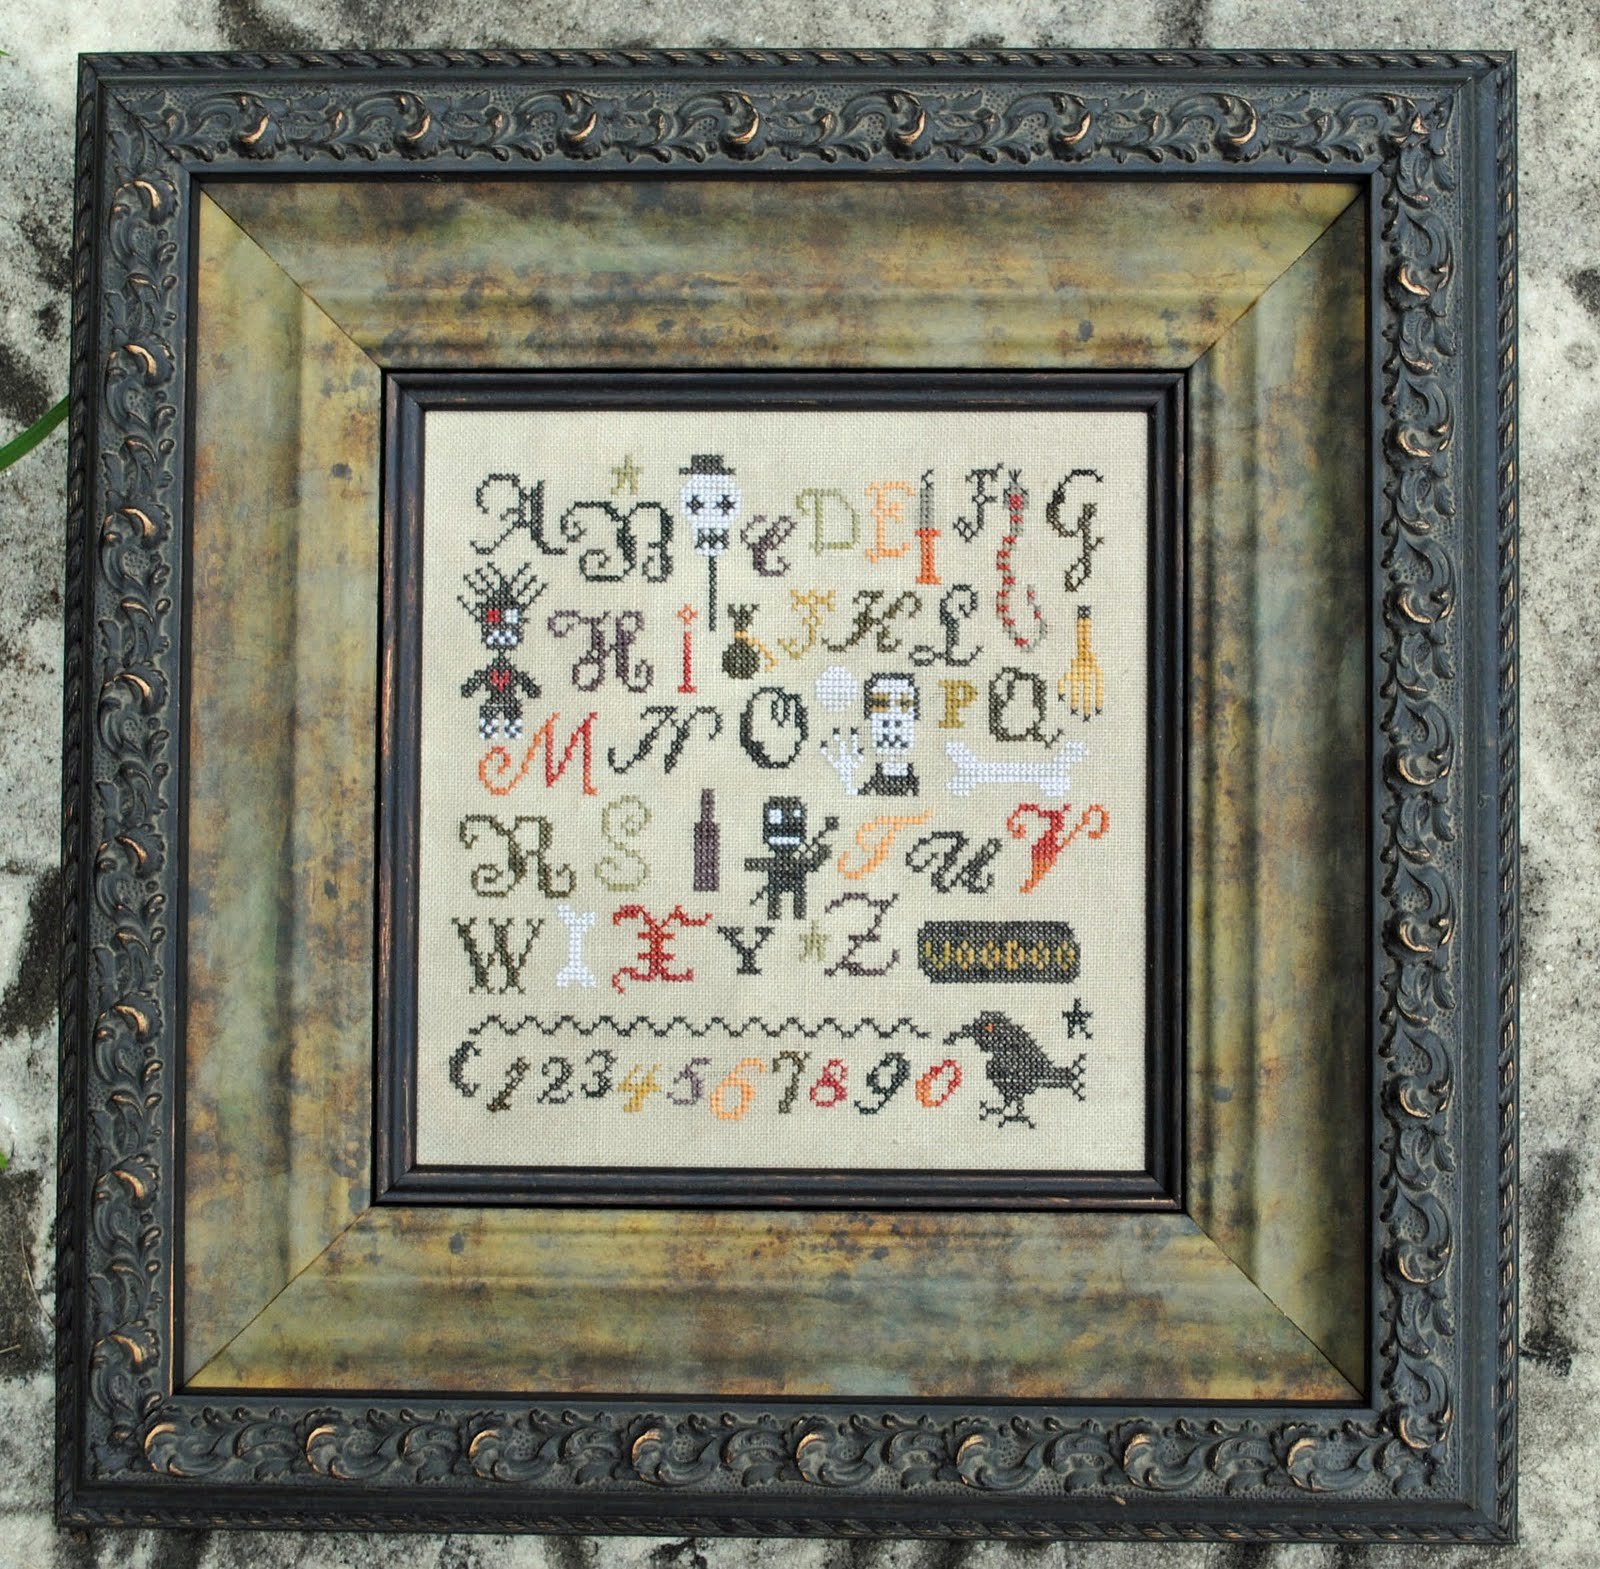 A B C D E F G
H i J K L
M N O P Q
R S T U V
W X Y Z
1 2 3 4 5 6 7 8 9 0